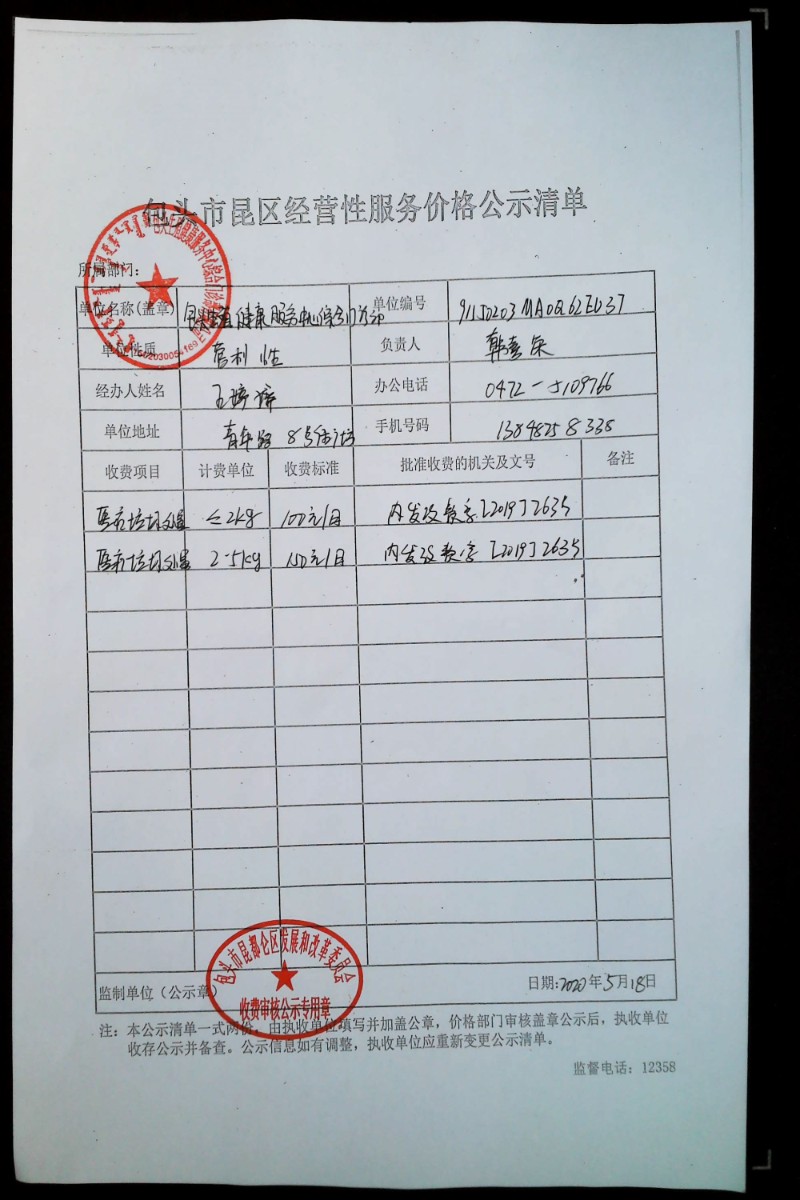 包头市昆区经营性服务价格公示清单
所属部门：
单位名称(盖章) 健康服务中心综合门诊部 单位编号 91150203MA0Q62EU37
单位性质 营利性 负责人 韩
经办人姓名 王婷婷 办公电话 0472-5109766
单位地址 青年路8号街坊 手机号码 13848258338
收费项目 计费单位 收费标准 批准收费的机关及文号 备注
医疗垃圾处置 ≤2kg 100元/日 内发改费字[2019]2635
医疗垃圾处置 2-5kg 150元/日 内发改费字[2019]2635
包头市昆都仑区发展和改革委员会
收费审核公示专用章
监制单位（公示章） 日期:2020年5月18日
注：本公示清单一式两份，由执收单位填写并加盖公章，价格部门审核盖章公示后，执收单位
收存公示并备查。公示信息如有调整，执收单位应重新变更公示清单。
监督电话：12358